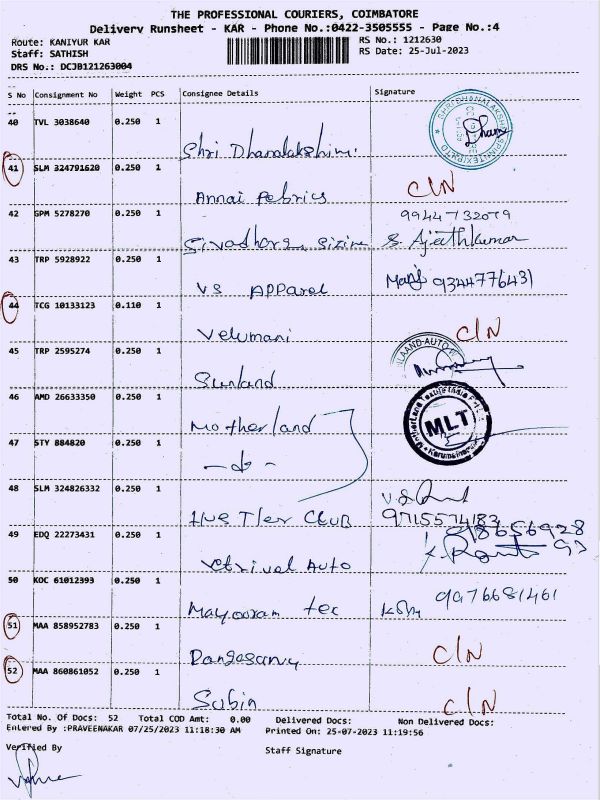 THE PROFESSIONAL COURIERS, COIMBATORE
Delivery Runsheet - KAR - Phone No.:0422-3505555 - Page No.:4
Route: KANIYUR KAR RS No.: 1212630
Staff: SATHISH RS Date: 25-Jul-2023
DRS No.: DCJB121263004
S No Consignment No Weight PCS Consignee Details Signature
40 TVL 3038640 0.250 1
Shri Dhanalakshimi
41 SLM 324791620 0.250 1
Annai Febrics C/N
42 GPM 5278270 0.250 1 9944732079
Sivadhara Sizing S. Ajeethkumar
43 TRP 5928922 0.250 1
VS APParel 9344776431
44 TCG 10133123 0.110 1
Velumani C/N
45 TRP 2595274 0.250 1
Sunland
46 AMD 26633350 0.250 1
Motherland MLT
47 STY 884820 0.250 1
-do-
48 SLM 324826332 0.250 1
CLUB 9715574183
49 EDQ 22273431 0.250 1
Vetrivel Auto
50 KOC 61012393 0.250 1
Mayooram tex 9976681461
51 MAA 858952783 0.250 1
Rangasamy C/N
52 MAA 860861052 0.250 1
Subin C/N
Total No. Of Docs: 52 Total COD Amt: 0.00 Delivered Docs: Non Delivered Docs:
Entered By :PRAVEENAKAR 07/25/2023 11:18:30 AM Printed On: 25-07-2023 11:19:56
Verified By Staff Signature